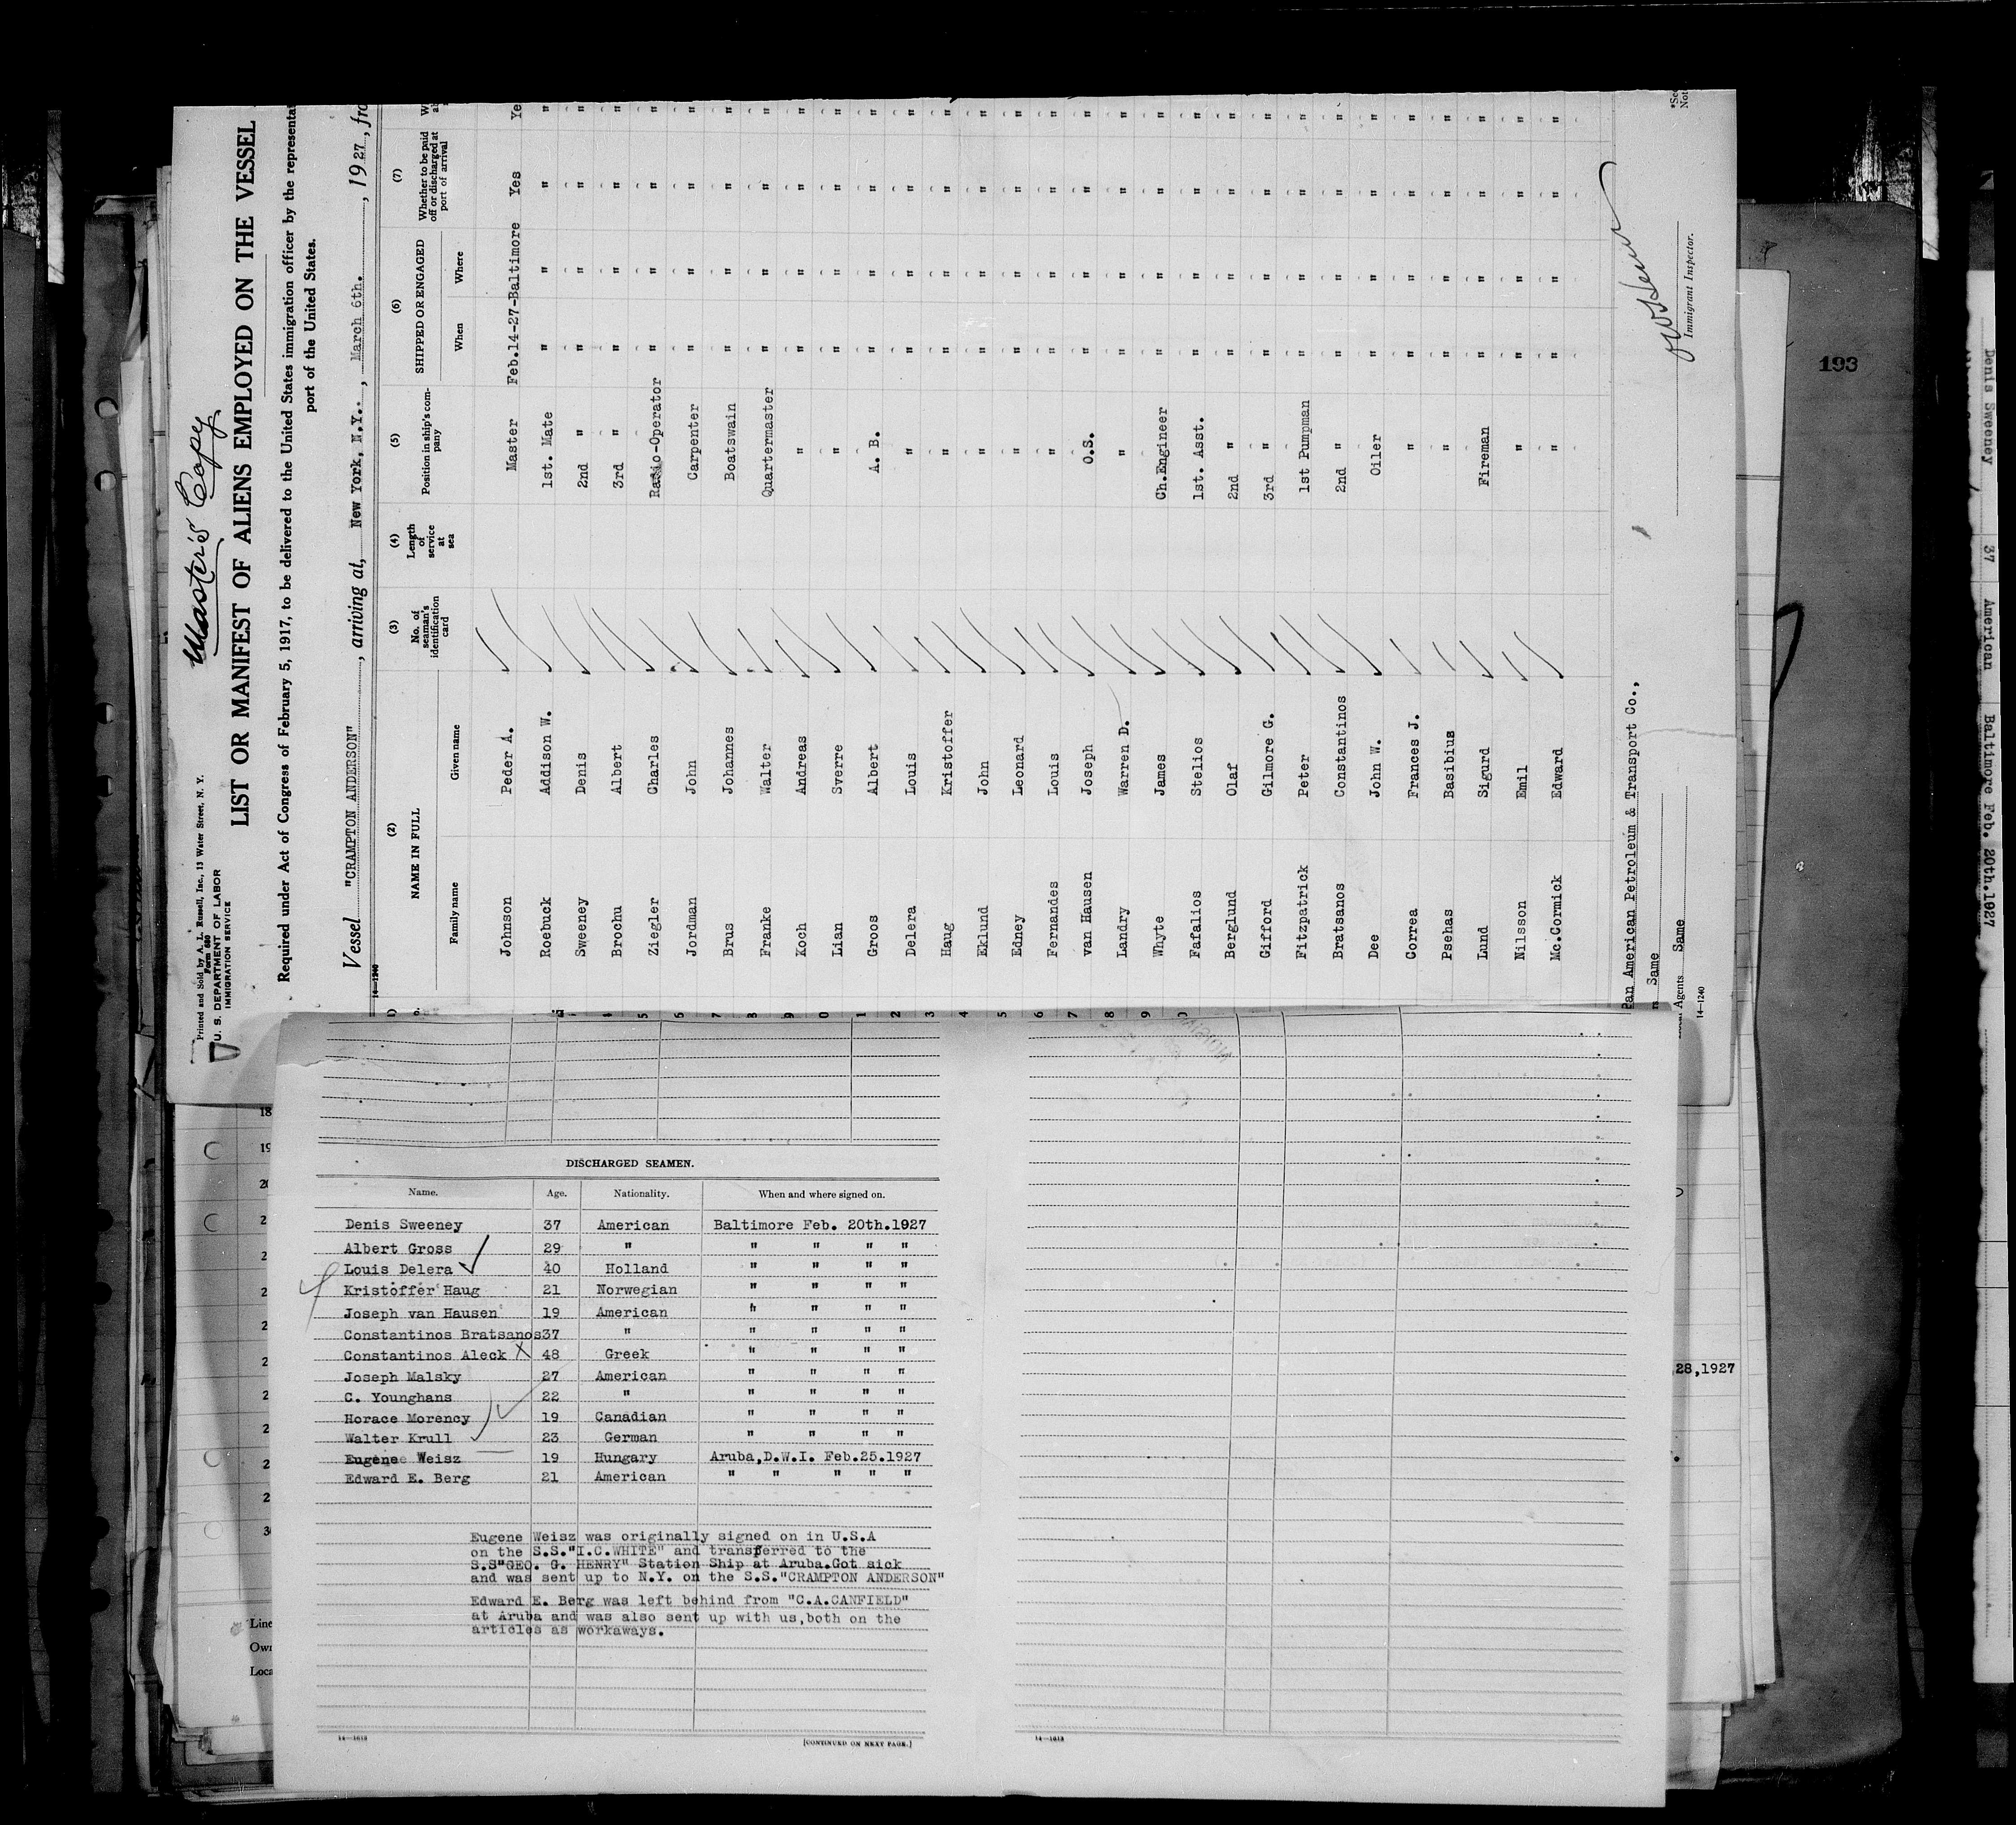 Master's Copy
Printed and Sold by A. L. Russell, Inc., 13 Water Street, N. Y.
Form 680
U. S. DEPARTMENT OF LABOR
IMMIGRATION SERVICE
LIST OR MANIFEST OF ALIENS EMPLOYED ON THE VESSEL
Required under Act of Congress of February 5, 1917, to be delivered to the United States immigration officer by the representa
port of the United States.
Vessel "CRAMPTON ANDERSON", arriving at, New York, N.Y., March 6th., 1927, fro
14—1240
(2) (3) (4) (5) (6) (7)
NAME IN FULL No. of seaman's identification card Length of service at sea Position in ship's company SHIPPED OR ENGAGED Whether to be paid off or discharged at port of arrival
Family name Given name When Where
Johnson Peder A. Master Feb.14-27-Baltimore Yes Ye
Roebuck Addison W. 1st. Mate " " " "
Sweeney Denis 2nd " " " " "
Brochu Albert 3rd " " " " "
Ziegler Charles Radio-Operator " " " "
Jordman John Carpenter " " " "
Brus Johannes Boatswain " " " "
Franke Walter Quartermaster " " " "
Koch Andreas " " " " "
Lian Sverre " " " " "
Groos Albert A. B. " " " "
Delera Louis " " " " "
Haug Kristoffer " " " " "
Eklund John " " " " "
Edney Leonard " " " " "
Fernandes Louis " " " " "
van Hausen Joseph O.S. " " " "
Landry Warren D. " " " " "
Whyte James Ch.Engineer " " " "
Fafalios Stelios 1st. Asst. " " " "
Berglund Olaf 2nd " " " " "
Gifford Gilmore G. 3rd " " " " "
Fitzpatrick Peter 1st Pumpman " " " "
Bratsanos Constantinos 2nd " " " " "
Dee John W. Oiler " " " "
Correa Frances J. " " " " "
Psehas Basibius " " " " "
Lund Sigurd Fireman " " " "
Nilsson Emil " " " " "
Mc.Cormick Edward " " " " "
Pan American Petroleum & Transport Co.,
Same
Agents Same
14—1240
Immigrant Inspector.
*See
Not
193
DISCHARGED SEAMEN.
Name. Age. Nationality. When and where signed on.
Denis Sweeney 37 American Baltimore Feb. 20th.1927
Albert Gross 29 " " " " "
Louis Delera 40 Holland " " " "
Kristoffer Haug 21 Norwegian " " " "
Joseph van Hausen 19 American " " " "
Constantinos Bratsanos 37 " " " " "
Constantinos Aleck X 48 Greek " " " "
Joseph Malsky 27 American " " " "
C. Younghans 22 " " " " "
Horace Morency 19 Canadian " " " "
Walter Krull 23 German " " " "
Eugene Weisz 19 Hungary Aruba,D.W.I. Feb.25.1927
Edward E. Berg 21 American " " " " "
Eugene Weisz was originally signed on in U.S.A
on the S.S."I.C.WHITE" and transferred to the
S.S"GEO. G. HENRY" Station Ship at Aruba.Got sick
and was sent up to N.Y. on the S.S."CRAMPTON ANDERSON"
Edward E. Berg was left behind from "C.A.CANFIELD"
at Aruba and was also sent up with us,both on the
articles as workaways.
14—1613
[CONTINUED ON NEXT PAGE.]
14—1613
18
19
Line
Own
Loca
28,1927
Denis Sweeney 37 American Baltimore Feb. 20th.1927